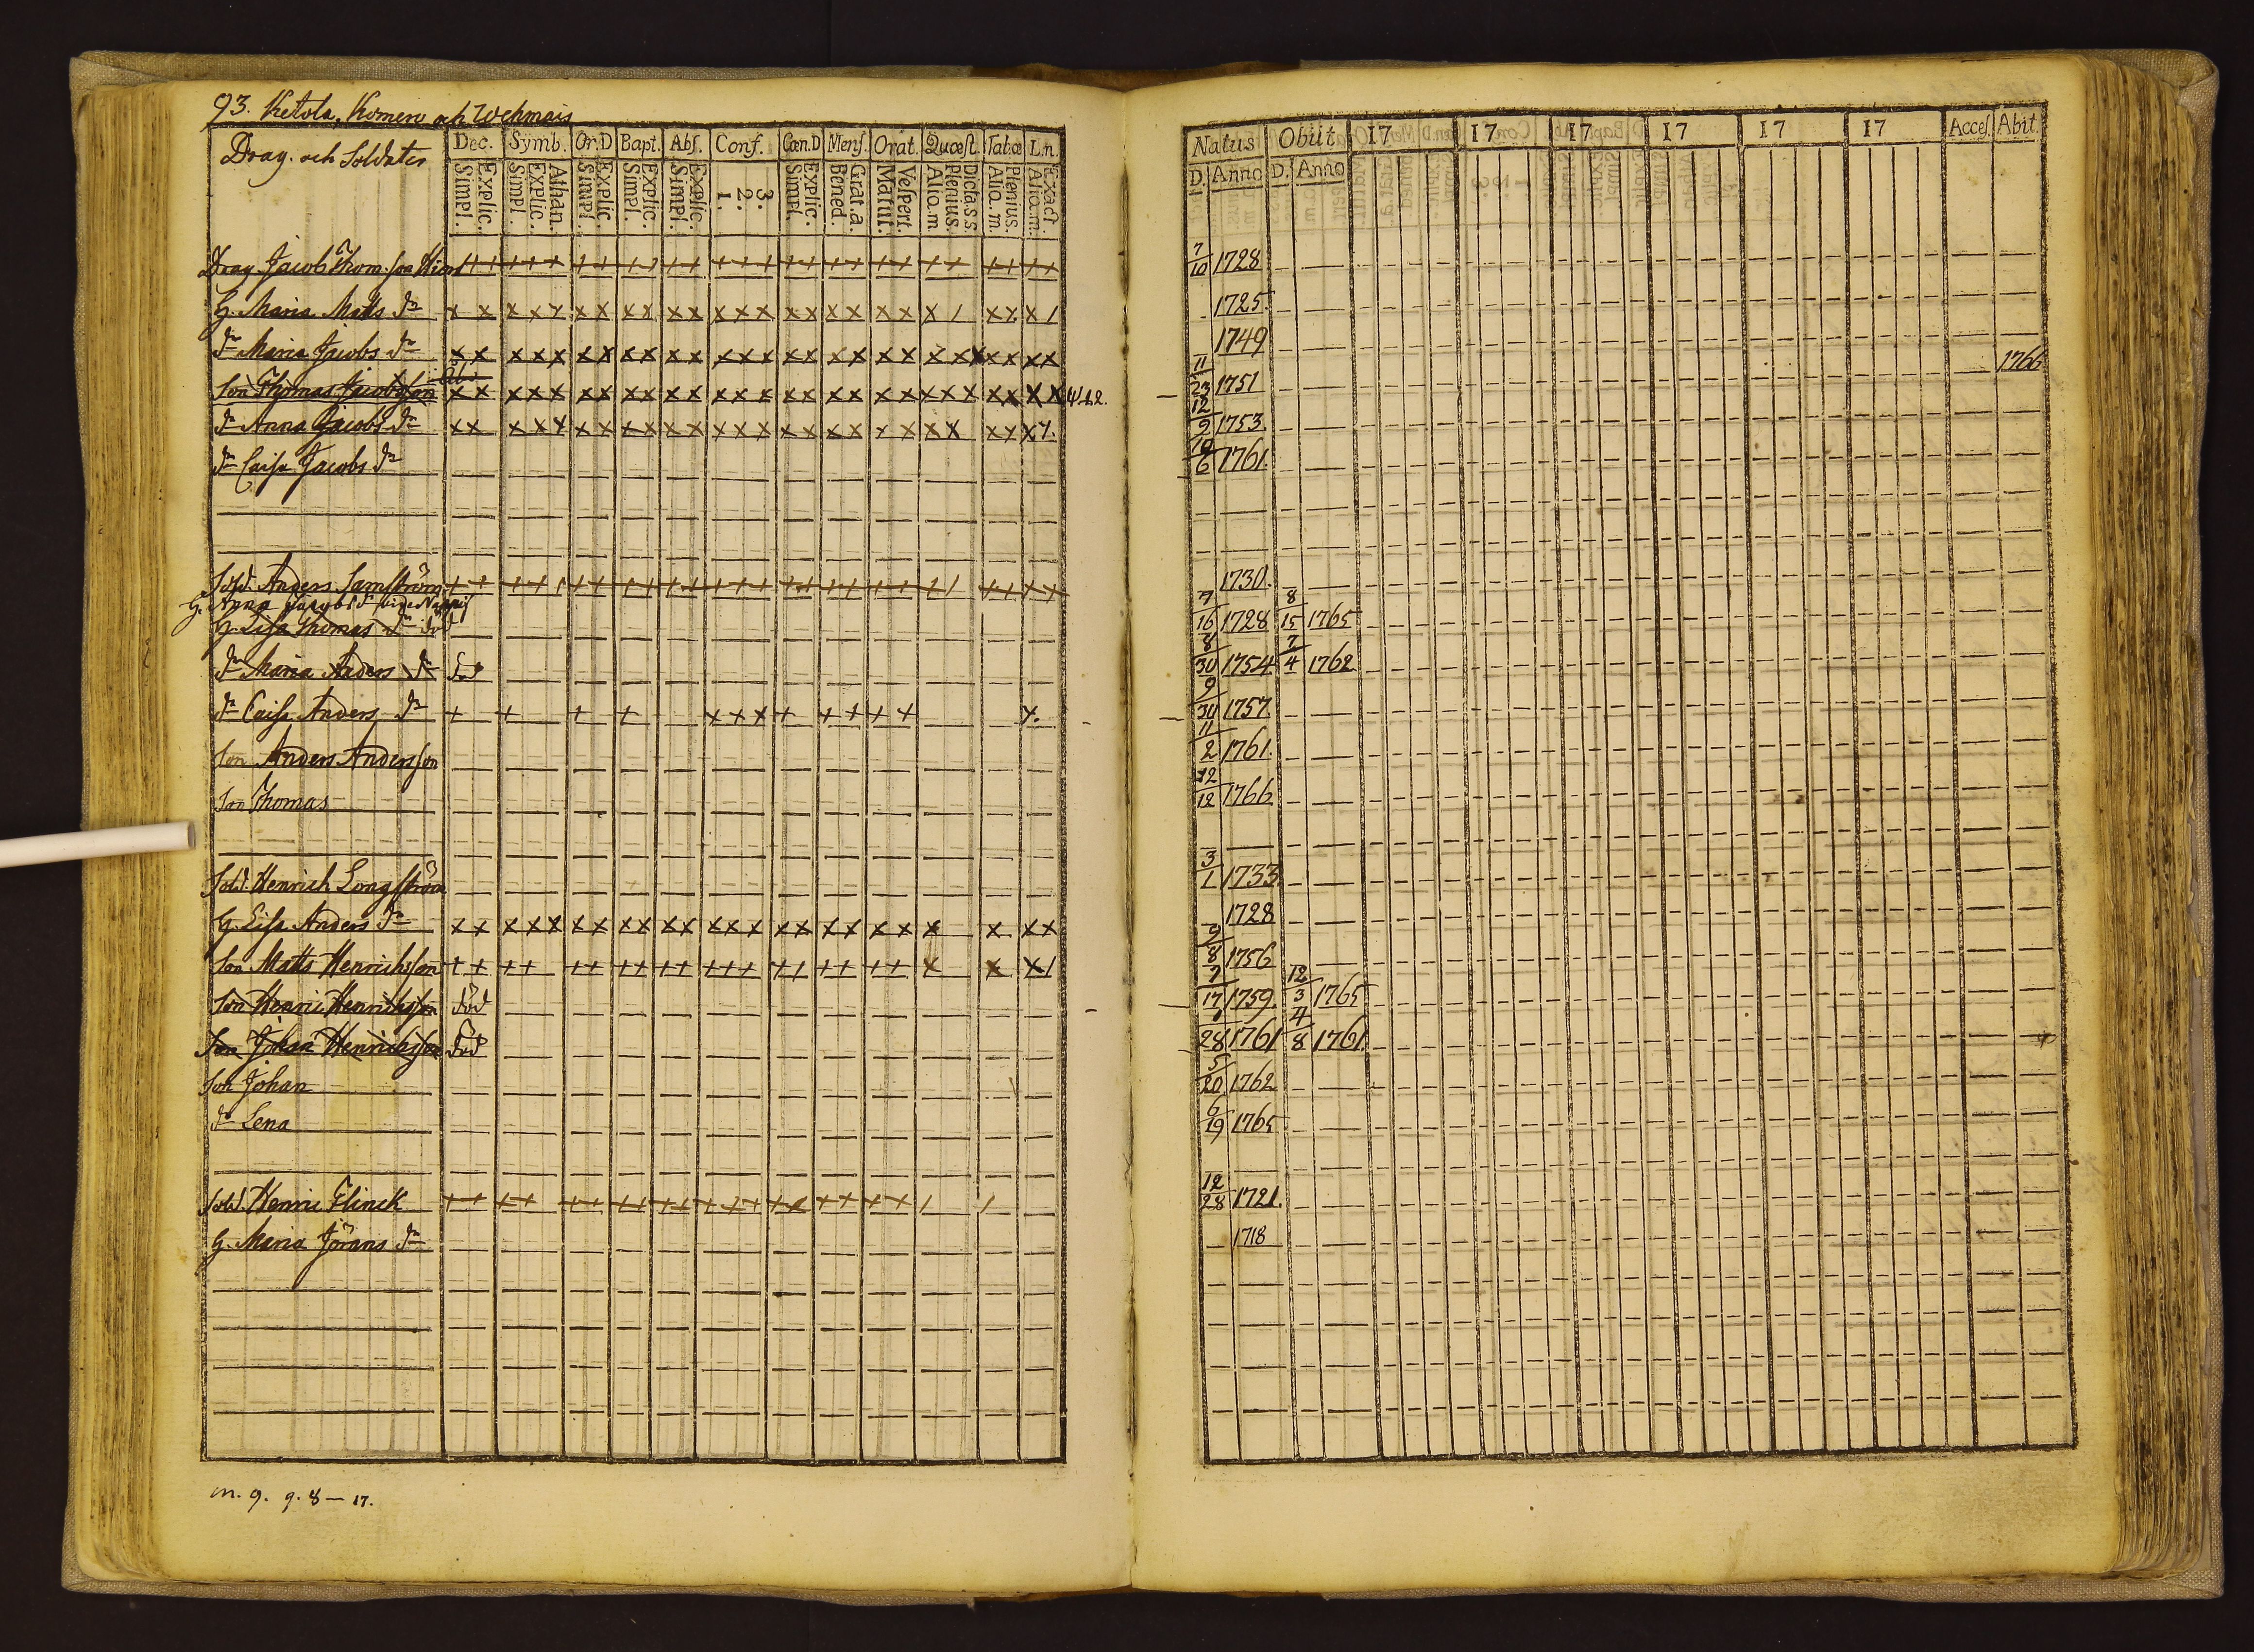 93. Ketola, Komero och Wehmais
Drag. och Soldater
Dec. Symb. Or.D Bapt. Abs. Conf. Cœn.D Mens. Orat. Quæst. Tabœ L.n.
Simpl. Explic. Simpl. Explic. Athan. Simpl. Explic. Simpl. Explic. Simpl. Explic. 1. 2. 3. Simpl. Explic. Bened. Grat.a. Matut. Vespert. Aliq.m. Plenius. Dicta.s.s. Aliq.m. Plenius. Aliq.m. Exact.
Drag. Jacob Thom.son
G. Maria Matts dr
dr Maria Jacobs dr
Son Thomas Jacobsson
dr Anna Jacobs dr
dr Caisa Jacobs dr
Sold. Anders Lamström
G. Anna Jacobs dr
G. Lisa Thomas dr död
dr Maria Anders dr död
dr Caisa Anders dr
Son Anders Andersson
Son Thomas
Sold. Henrich Longström
G. Lisa Anders dr
Son Matts Henrichsson
Son Henric Henrichsson död
Son Johan Henrichsson död
Son Johan
dr Lena
Sold. Henric Flinck
G. Maria Jörans dr
m. 9. q. 8 — 17.
Natus Obiit 17 17 17 17 17 17 Acces. Abit.
D. Anno D. Anno
7/10 1728
1725.
1749
11/23 1751 1766
12/9 1753
10/6 1761.
1730.
7/16 1728 8/15 1765
8/30 1754 7/4 1762
9/30 1757
11/2 1761.
12/12 1766
3/1 1733.
1728
9/8 1756
7/17 1759. 12/3 1765
28 1761 4/8 1761.
5/20 1762
6/19 1765
12/28 1721.
1718